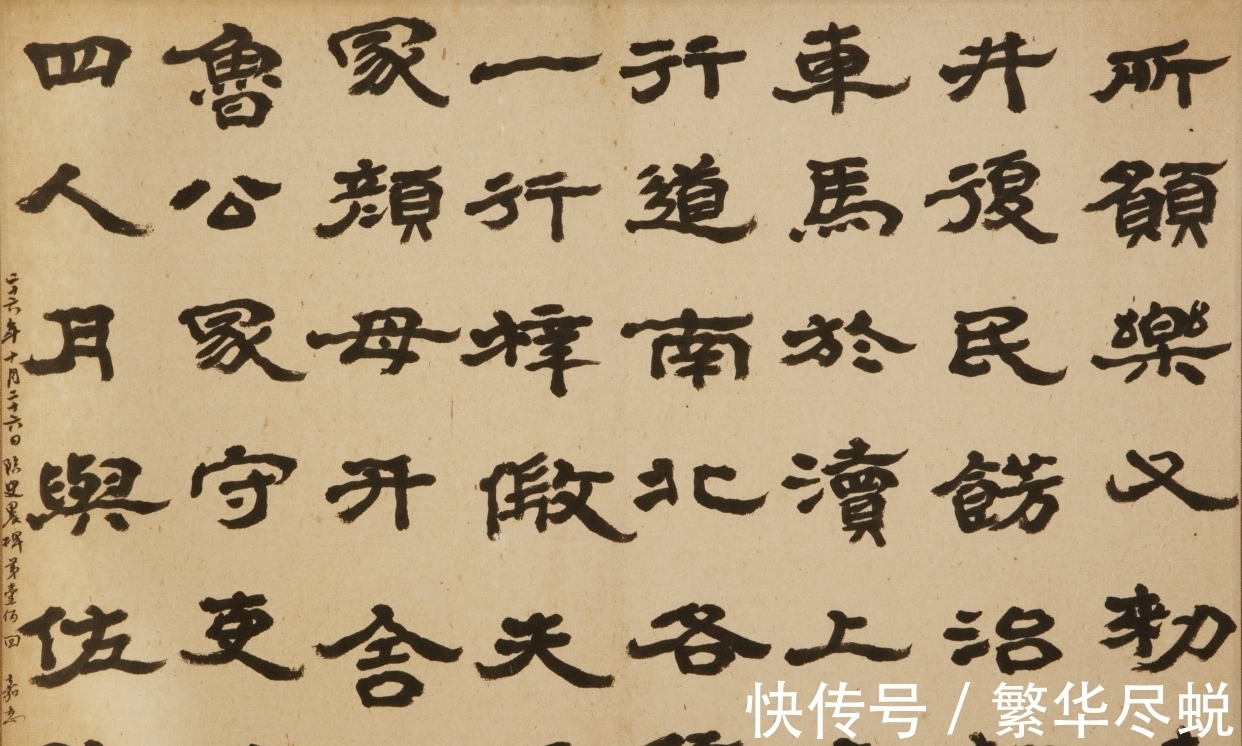 所願樂又勑
井復民餝治
車馬於瀆上
行道南北各
一行梓假夫
冢顏母井舍
魯公冢守吏
四人月與佐
二十六年十月二十六日臨史晨碑第壹佰回 嘉
快传号 / 繁华尽蜕